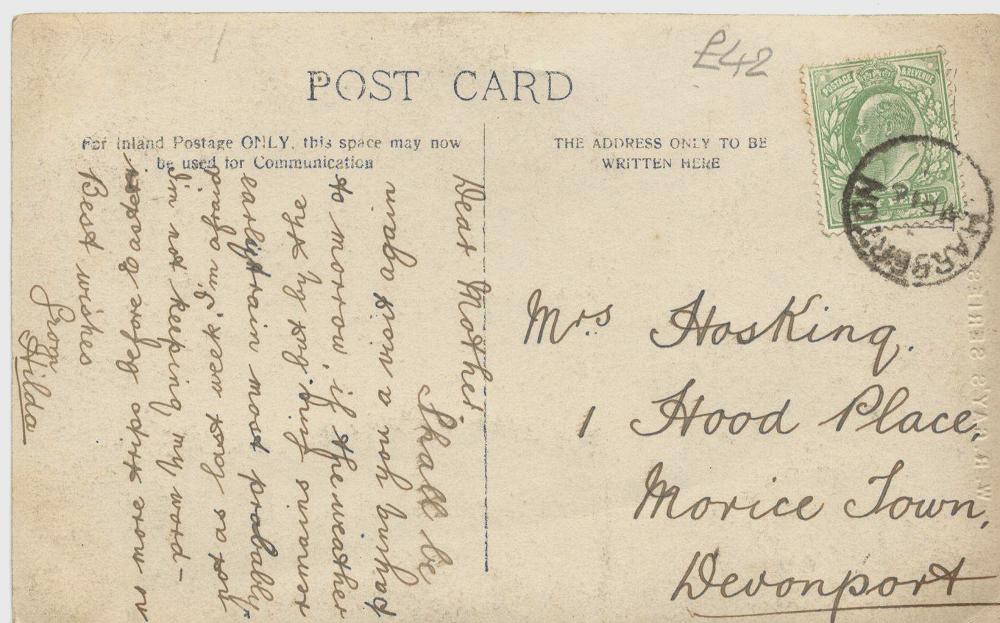 POST CARD
£42
For Inland Postage ONLY, this space may now
be used for Communication
THE ADDRESS ONLY TO BE
WRITTEN HERE
POSTAGE & REVENUE
HARBERTON
Dear Mother,
Shall be
paying you a visit again
to morrow, if the weather
remains fine, but by the
early train most probably,
not as last week. I'm afraid
I'm not keeping my word —
no more trips before Easter.
Best wishes
From
Hilda
Mrs Hosking.
1 Hood Place,
Morice Town,
Devonport